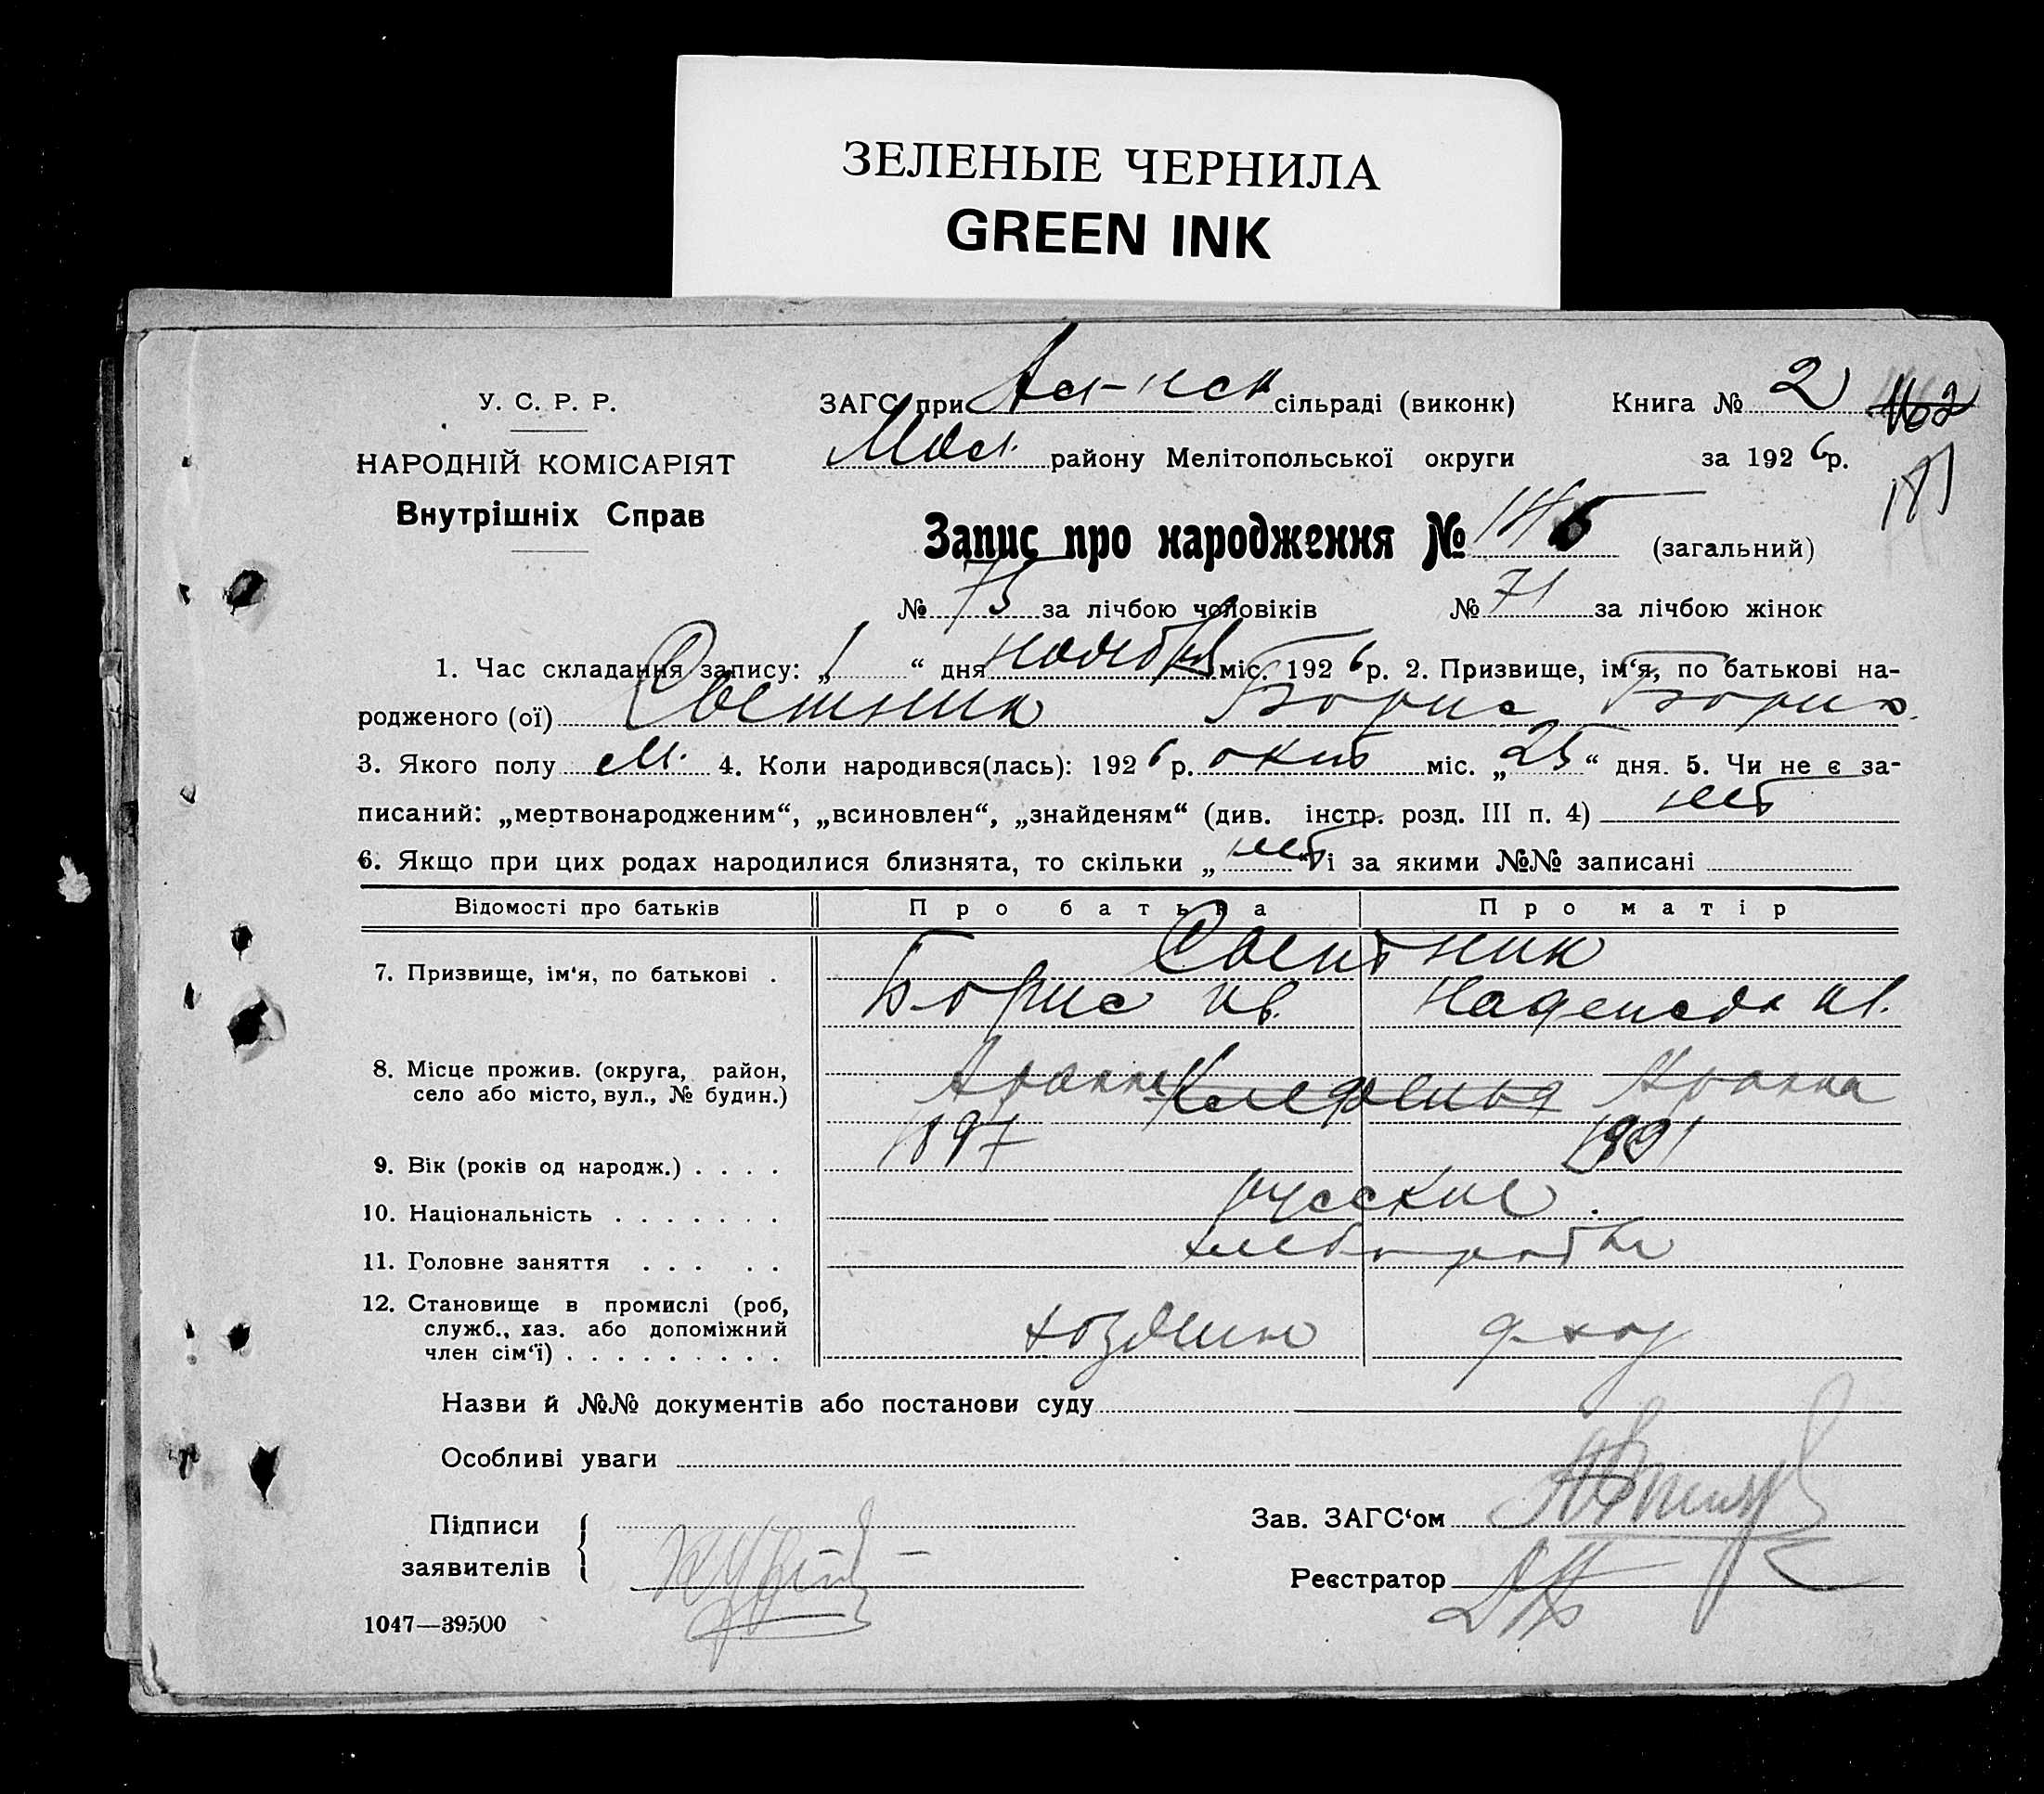 ЗЕЛЕНЫЕ ЧЕРНИЛА
GREEN INK
У. С. Р. Р.
НАРОДНІЙ КОМІСАРІЯТ
Внутрішніх Справ
ЗАГС при сільраді (виконк) Книга № 2
162
району Мелітопольської округи за 1926 р.
181
Запис про народження № 146 (загальний)
№ 75 за лічбою чоловіків № 71 за лічбою жінок
1. Час складання запису: „ 1 “ дня ноября міс. 1926 р. 2. Призвище, ім‘я, по батькові на-
родженого (ої) Светник Борис Борис.
3. Якого полу М. 4. Коли народився(лась): 1926 р. окт міс. „ 25 “ дня. 5. Чи не є за-
писаний: „мертвонародженим“, „всиновлен“, „знайденям“ (див. інстр. розд. III п. 4) нет
6. Якщо при цих родах народилися близнята, то скільки „ нет “ і за якими №№ записані
Відомості про батьків Про батька Про матір
Светник
7. Призвище, ім‘я, по батькові . Борис Ив. Надежда Ив.
8. Місце прожив. (округа, район,
село або місто, вул., № будин.)
9. Вік (років од народж.) . . . . 1897 1901
10. Національність . . . . . . . русские.
11. Головне заняття . . . . . хлебороб
12. Становище в промислі (роб,
служб., хаз. або допоміжний
член сім‘ї) . . . . . . . . . хозяин д-хоз
Назви й №№ документів або постанови суду
Особливі уваги
Підписи
заявителів
Зав. ЗАГС‘ом
Реєстратор
1047—39500